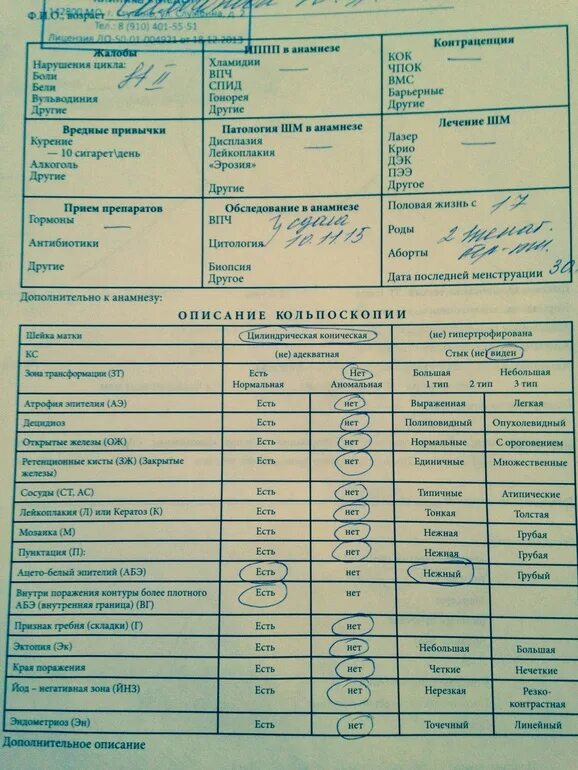 142800 МО, г. Ступино, ул. Службина, д. 2
Ф.И.О., возраст
Тел.: 8 (910) 401-55-51
Лицензия ЛО-50-01-004921 от 18.12.2013
Жалобы
Нарушения цикла:
Боли
Бели
Вульводиния
Другие
ИППП в анамнезе
Хламидии
ВПЧ
СПИД
Гонорея
Другие
Контрацепция
КОК
ЧПОК
ВМС
Барьерные
Другие
Вредные привычки
Курение
— 10 сигарет\день
Алкоголь
Другие
Патология ШМ в анамнезе
Дисплазия
Лейкоплакия
«Эрозия»
Другие
Лечение ШМ
Лазер
Крио
ДЭК
ПЭЭ
Другое
Прием препаратов
Гормоны
Антибиотики
Другие
Обследование в анамнезе
ВПЧ
сдала
Цитология 10.11.15
Биопсия
Другое
Половая жизнь с 17
Роды 2
Аборты
Дата последней менструации 30.
Дополнительно к анамнезу:
ОПИСАНИЕ КОЛЬПОСКОПИИ
Шейка матки Цилиндрическая коническая (не) гипертрофирована
КС (не) адекватная Стык (не) виден
Зона трансформации (ЗТ) Есть Нет Большая Небольшая
Нормальная Аномальная 1 тип 2 тип 3 тип
Атрофия эпителия (АЭ) Есть нет Выраженная Легкая
Децидиоз Есть нет Полиповидный Опухолевидный
Открытые железы (ОЖ) Есть нет Нормальные С ороговением
Ретенционные кисты (ЗЖ) (Закрытые Есть нет Единичные Множественные
железы)
Сосуды (СТ, АС) Есть нет Типичные Атипические
Лейкоплакия (Л) или Кератоз (К) Есть нет Тонкая Толстая
Мозаика (М) Есть нет Нежная Грубая
Пунктация (П): Есть нет Нежная Грубая
Ацето-белый эпителий (АБЭ) Есть нет Нежный Грубый
Внутри поражения контуры более плотного Есть нет
АБЭ (внутренняя граница) (ВГ)
Признак гребня (складки) (Г) Есть нет
Эктопия (Эк) Есть нет Небольшая Большая
Края поражения Есть нет Четкие Нечеткие
Йод – негативная зона (ЙНЗ) Есть нет Нерезкая Резко-
контрастная
Эндометриоз (Эн) Есть нет Точечный Линейный
Дополнительное описание